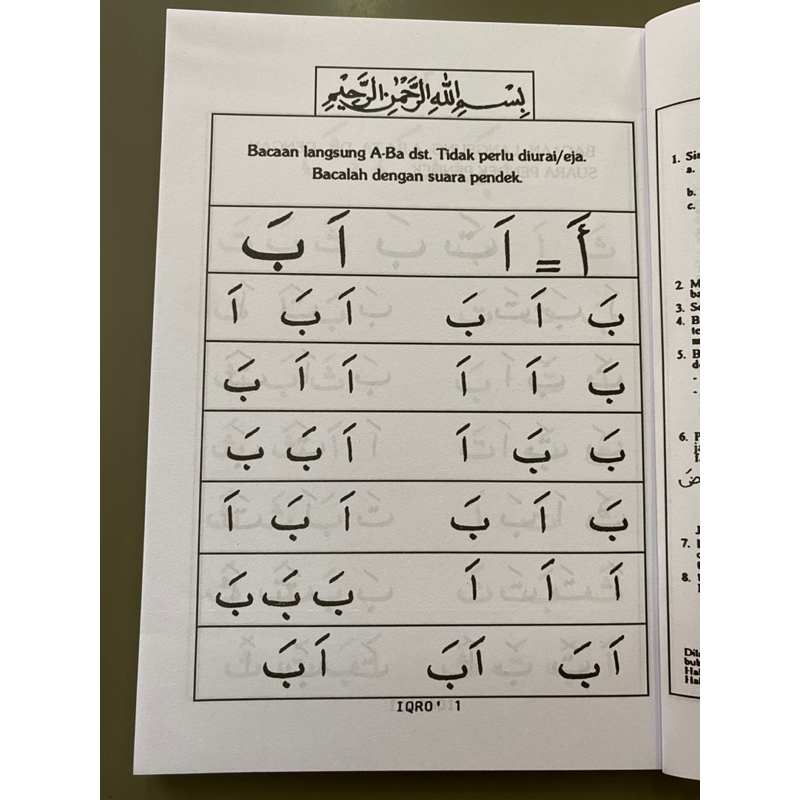 بِسْمِ اللهِ الرَّحْمٰنِ الرَّحِيْمِ
Bacaan langsung A-Ba dst. Tidak perlu diurai/eja.
Bacalah dengan suara pendek.
أَ = اَ اَ بَ
بَ اَ بَ اَ بَ اَ
بَ اَ اَ اَ اَ بَ
بَ بَ اَ اَ بَ بَ
بَ اَ بَ اَ بَ اَ
اَ اَ اَ بَ بَ بَ
اَبَ اَبَ اَبَ
IQRO' 1
1.
a.
b.
c.
2.
3.
4.
5.
6.
7.
8.